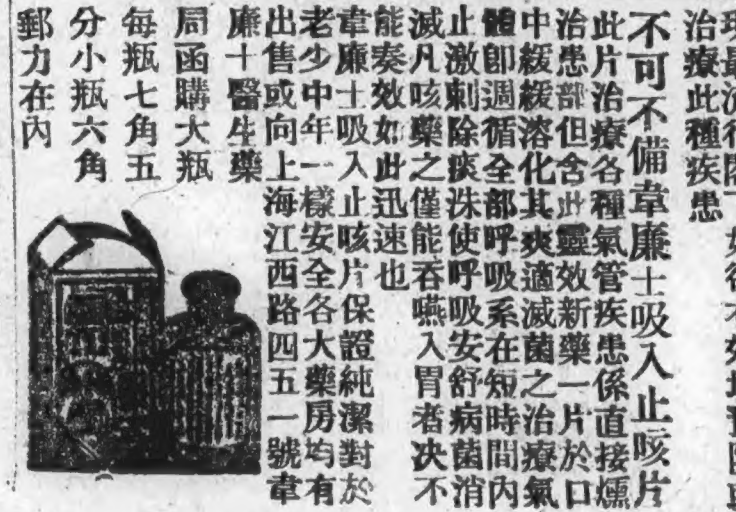 治療此種疾患
不可不備韋廉士吸入止咳片
此片治療各種氣管疾患係直接燻
治患部但含此靈效新藥一片於口
中緩緩溶化其爽適滅菌之治療氣
體卽週循全部呼吸系在短時間內
止激刺除痰洙使呼吸安舒病菌消
滅凡咳藥之僅能吞嚥入胃者决不
能奏效如此迅速也
韋廉士吸入止咳片保證純潔對於
老少中年一樣安全各大藥房均有
出售或向上海江西路四五一號韋
廉士醫生藥
局函購大瓶
每瓶七角五
分小瓶六角
郵力在內